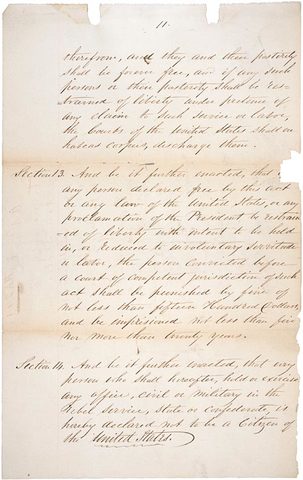 11.
therefrom, and they and their posterity
shall be forever free, and if any such
persons or their posterity shall be res-
trained of liberty under pretence of
any claim to such service or labor,
the Courts of the United States shall on
habeas corpus, discharge them.
Section 13. And be it further enacted, that if
any person declared free by this act
be any law of the United States, or any
proclamation of the President be restrain-
ed of liberty with intent to be held
in, or reduced to involuntary servitude
or labor, the person convicted before
a court of competent jurisdiction of such
act shall be punished by fine of
not less than fifteen Hundred Dollars
and be imprisoned not less than five
nor more than twenty years.
Section 14. And be it further enacted, that every
person who shall hereafter, hold or exercise
any office, civil or military in the
Rebel service, State or Confederate, is
hereby declared not to be a Citizen of
the United States.